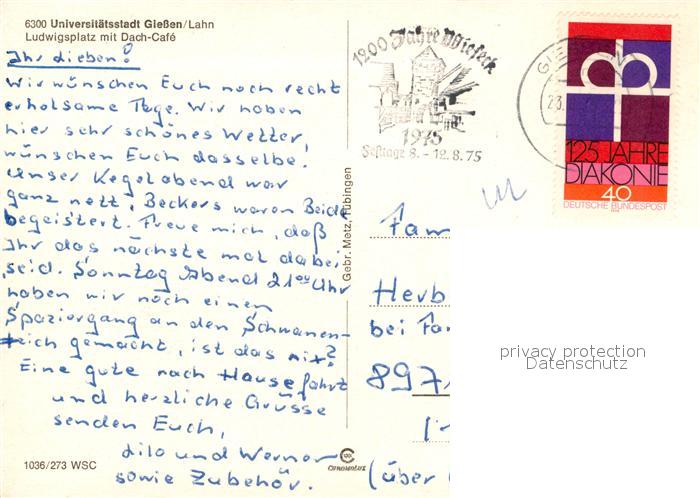 6300 Universitätsstadt Gießen/Lahn
Ludwigsplatz mit Dach-Café
Ihr Lieben!
Wir wünschen Euch noch recht
erholsame Tage. Wir haben
hier sehr schönes Wetter,
wünschen Euch dasselbe.
Unser Kegelabend war
ganz nett, Beckers waren Beide
begeistert. Freue mich, daß
Ihr das nächste mal dabei
seid. Sonntag Abend 21⁰⁰ Uhr
haben wir noch einen
Spaziergang an den Schwanen-
teich gemacht, ist das nix?
Eine gute nach Hausefahrt
und herzliche Grüsse
senden Euch,
Lilo und Werner
sowie Zubehör.
1036/273 WSC
CHROMOLUX
Gebr. Metz, Tübingen
1200 Jahre Wieseck
1975
Festtage 8. - 12. 8. 75
GIE
23.
125 JAHRE
DIAKONIE
40
DEUTSCHE BUNDESPOST
Fam
Herb
bei Fa
897
(über
privacy protection
Datenschutz